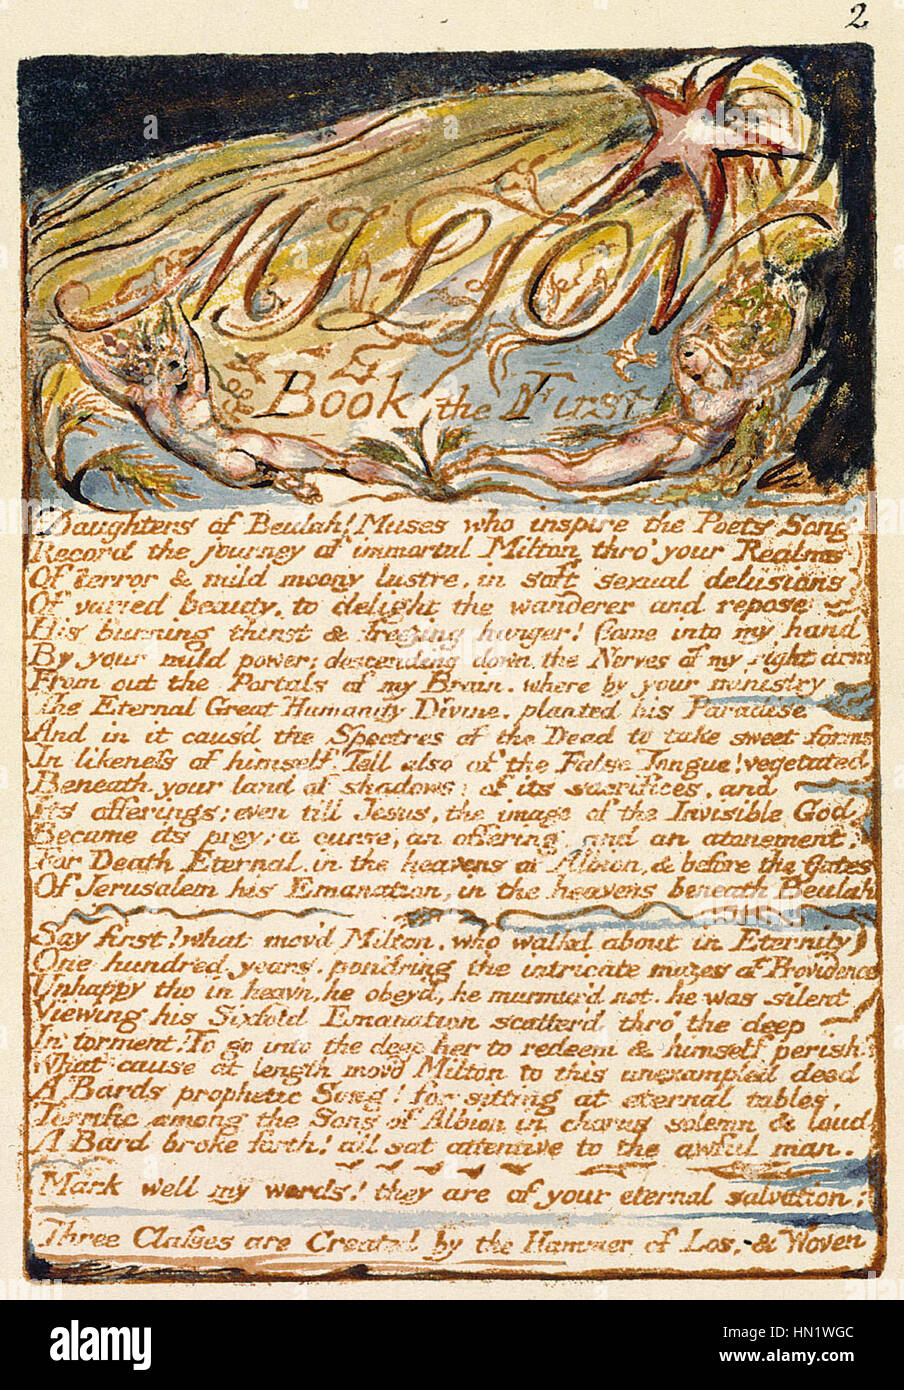 2
MILTON
Book the First
Daughters of Beulah! Muses who inspire the Poets Song
Record the journey of immortal Milton thro' your Realms
Of terror & mild moony lustre, in soft sexual delusions
Of varied beauty, to delight the wanderer and repose
His burning thirst & freezing hunger! Come into my hand
By your mild power; descending down the Nerves of my right arm
From out the Portals of my Brain, where by your ministry
The Eternal Great Humanity Divine, planted his Paradise
And in it caus'd the Spectres of the Dead to take sweet forms
In likeness of himself. Tell also of the False Tongue! vegetated
Beneath your land of shadows; of its sacrifices, and
Its offerings; even till Jesus, the image of the Invisible God
Became its prey; a curse, an offering, and an atonement,
For Death Eternal in the heavens of Albion, & before the Gates
Of Jerusalem his Emanation, in the heavens beneath Beulah
Say first! what mov'd Milton, who walkd about in Eternity
One hundred years, pondring the intricate mazes of Providence
Unhappy tho in heav'n, he obey'd, he murmur'd not. he was silent
Viewing his Sixfold Emanation scatter'd thro' the deep
In torment! To go into the deep her to redeem & himself perish?
What cause at length mov'd Milton to this unexampled deed
A Bards prophetic Song! for sitting at eternal tables,
Terrific among the Sons of Albion in chorus solemn & loud
A Bard broke forth! all sat attentive to the awful man.
Mark well my words! they are of your eternal salvation:
Three Classes are Created by the Hammer of Los, & Woven
alamy stock photo
HN1WGC
www.alamy.com